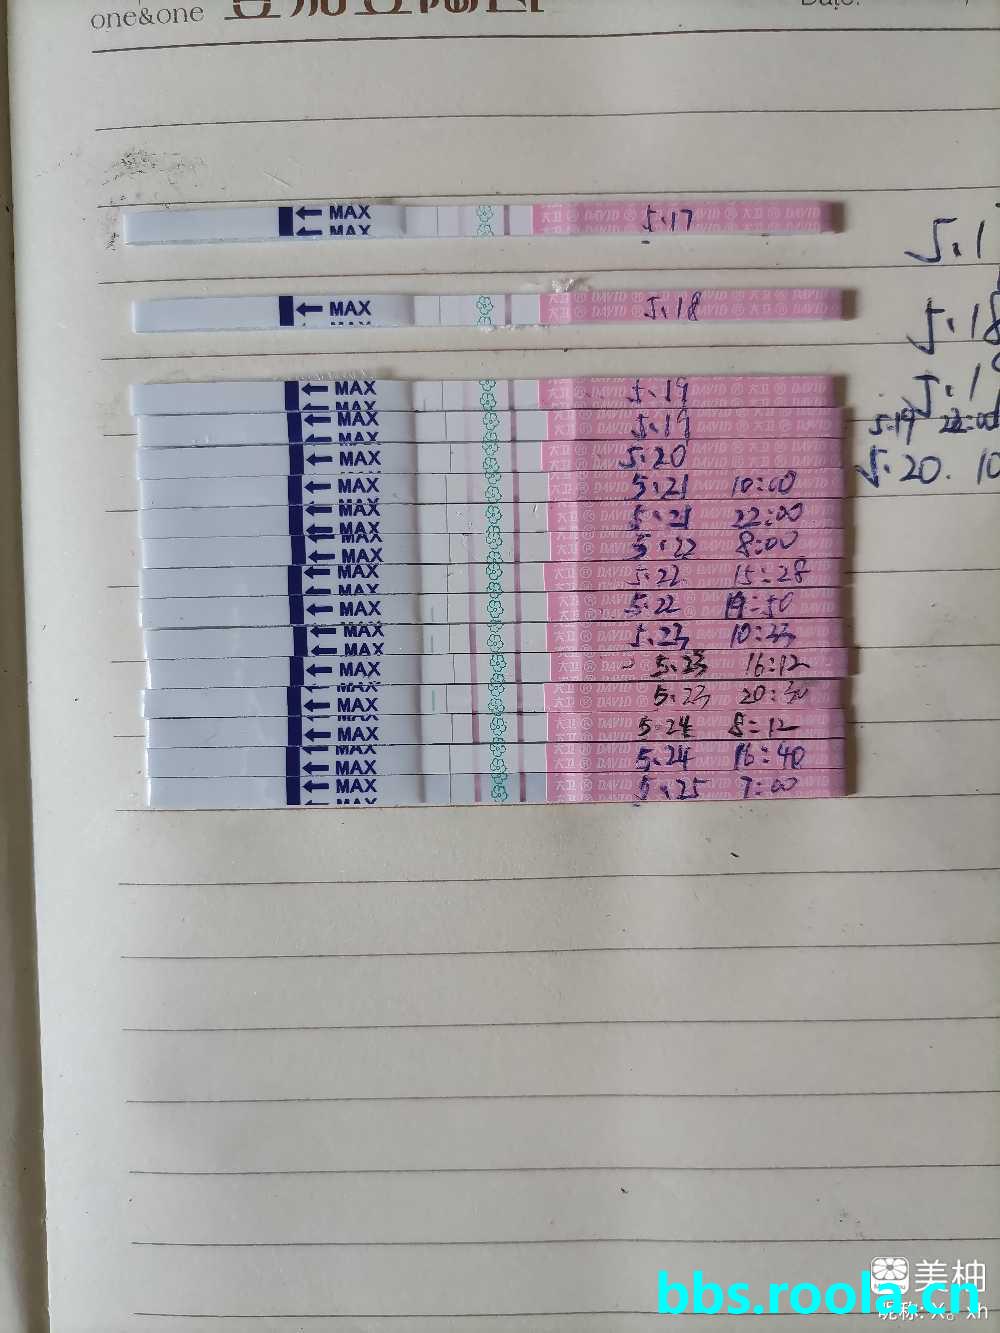 one&one
Date:
MAX
MAX
大卫 DAVID DAVID 大卫 DAVID
5.17
5.1
MAX
大卫 DAVID DAVID 大卫 DAVID
5.18
5.18
MAX
MAX
5.19
5.1
MAX
5.19
5.19 22:00
MAX
5.20
5.20. 10
MAX
5.21 10:00
MAX
MAX
5.21 22:00
MAX
MAX
5.22 8:00
MAX
MAX
5.22 15:28
MAX
5.22 19:50
MAX
MAX
5.23 10:23
MAX
5.23 16:12
MAX
MAX
5.23 20:30
MAX
MAX
5.24 8:12
MAX
MAX
5.24 16:40
MAX
MAX
5.25 7:00
美柚
bbs.roola.cn
昵称: X。xh